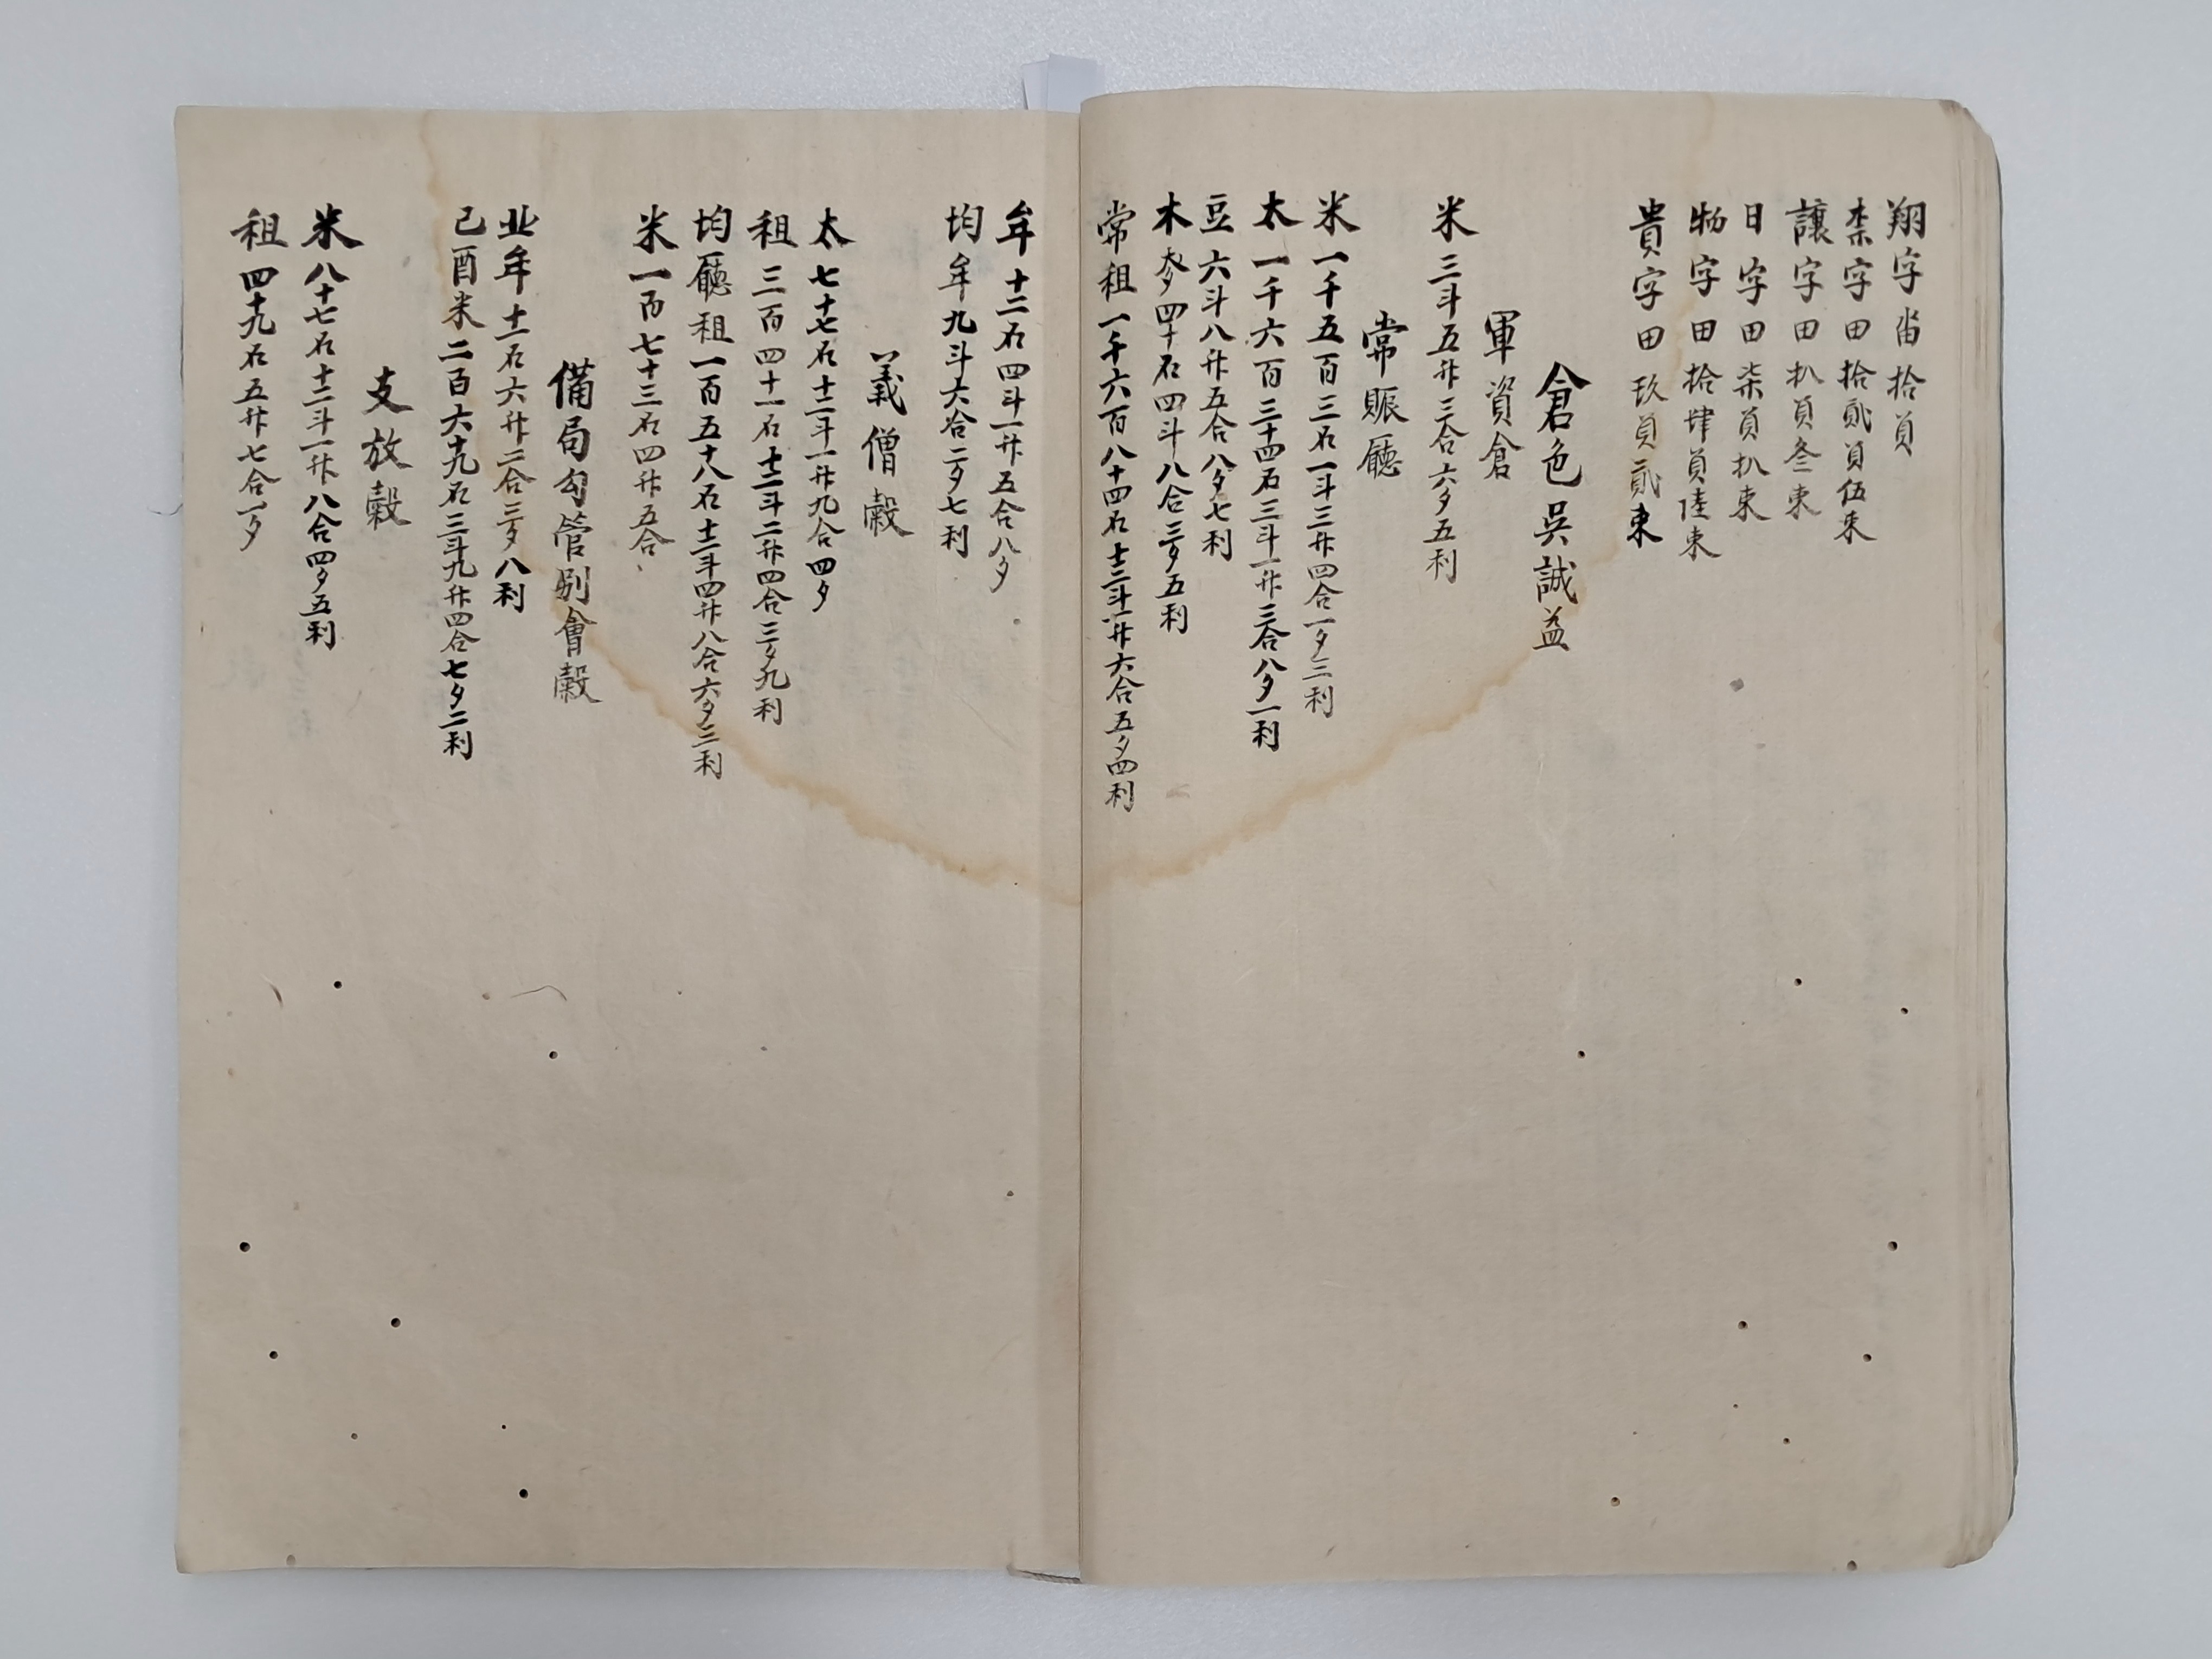 翔字畓拾員
柰字田拾貳員伍束
讓字田扒員叄束
日字田柒員扒束
物字田拾肆員陸束
貴字田玖員貳束
倉色吳誠益
軍資倉
米三斗五升三合六夕五利
常賑廳
米一千五百三石一斗三升四合一夕三利
太一千六百三十四石三斗一升三合八夕一利
豆六斗八升五合八夕七利
木麥四十石四斗八合三夕五利
常租一千六百八十四石十二斗一升六合五夕四利
牟十二石四斗一升五合八夕
均牟九斗六合二夕七利
義僧穀
太七十七石十二斗一升九合四夕
租三百四十一石十二斗二升四合三夕九利
均廳租一百五十八石十二斗四升八合六夕三利
米一百七十三石四升五合
備局勾管別會穀
牟十一石六升二合三夕八利
己酉米二百六十九石三斗九升四合七夕二利
支放穀
米八十七石十二斗一升八合四夕五利
租四十九石五升七合一夕